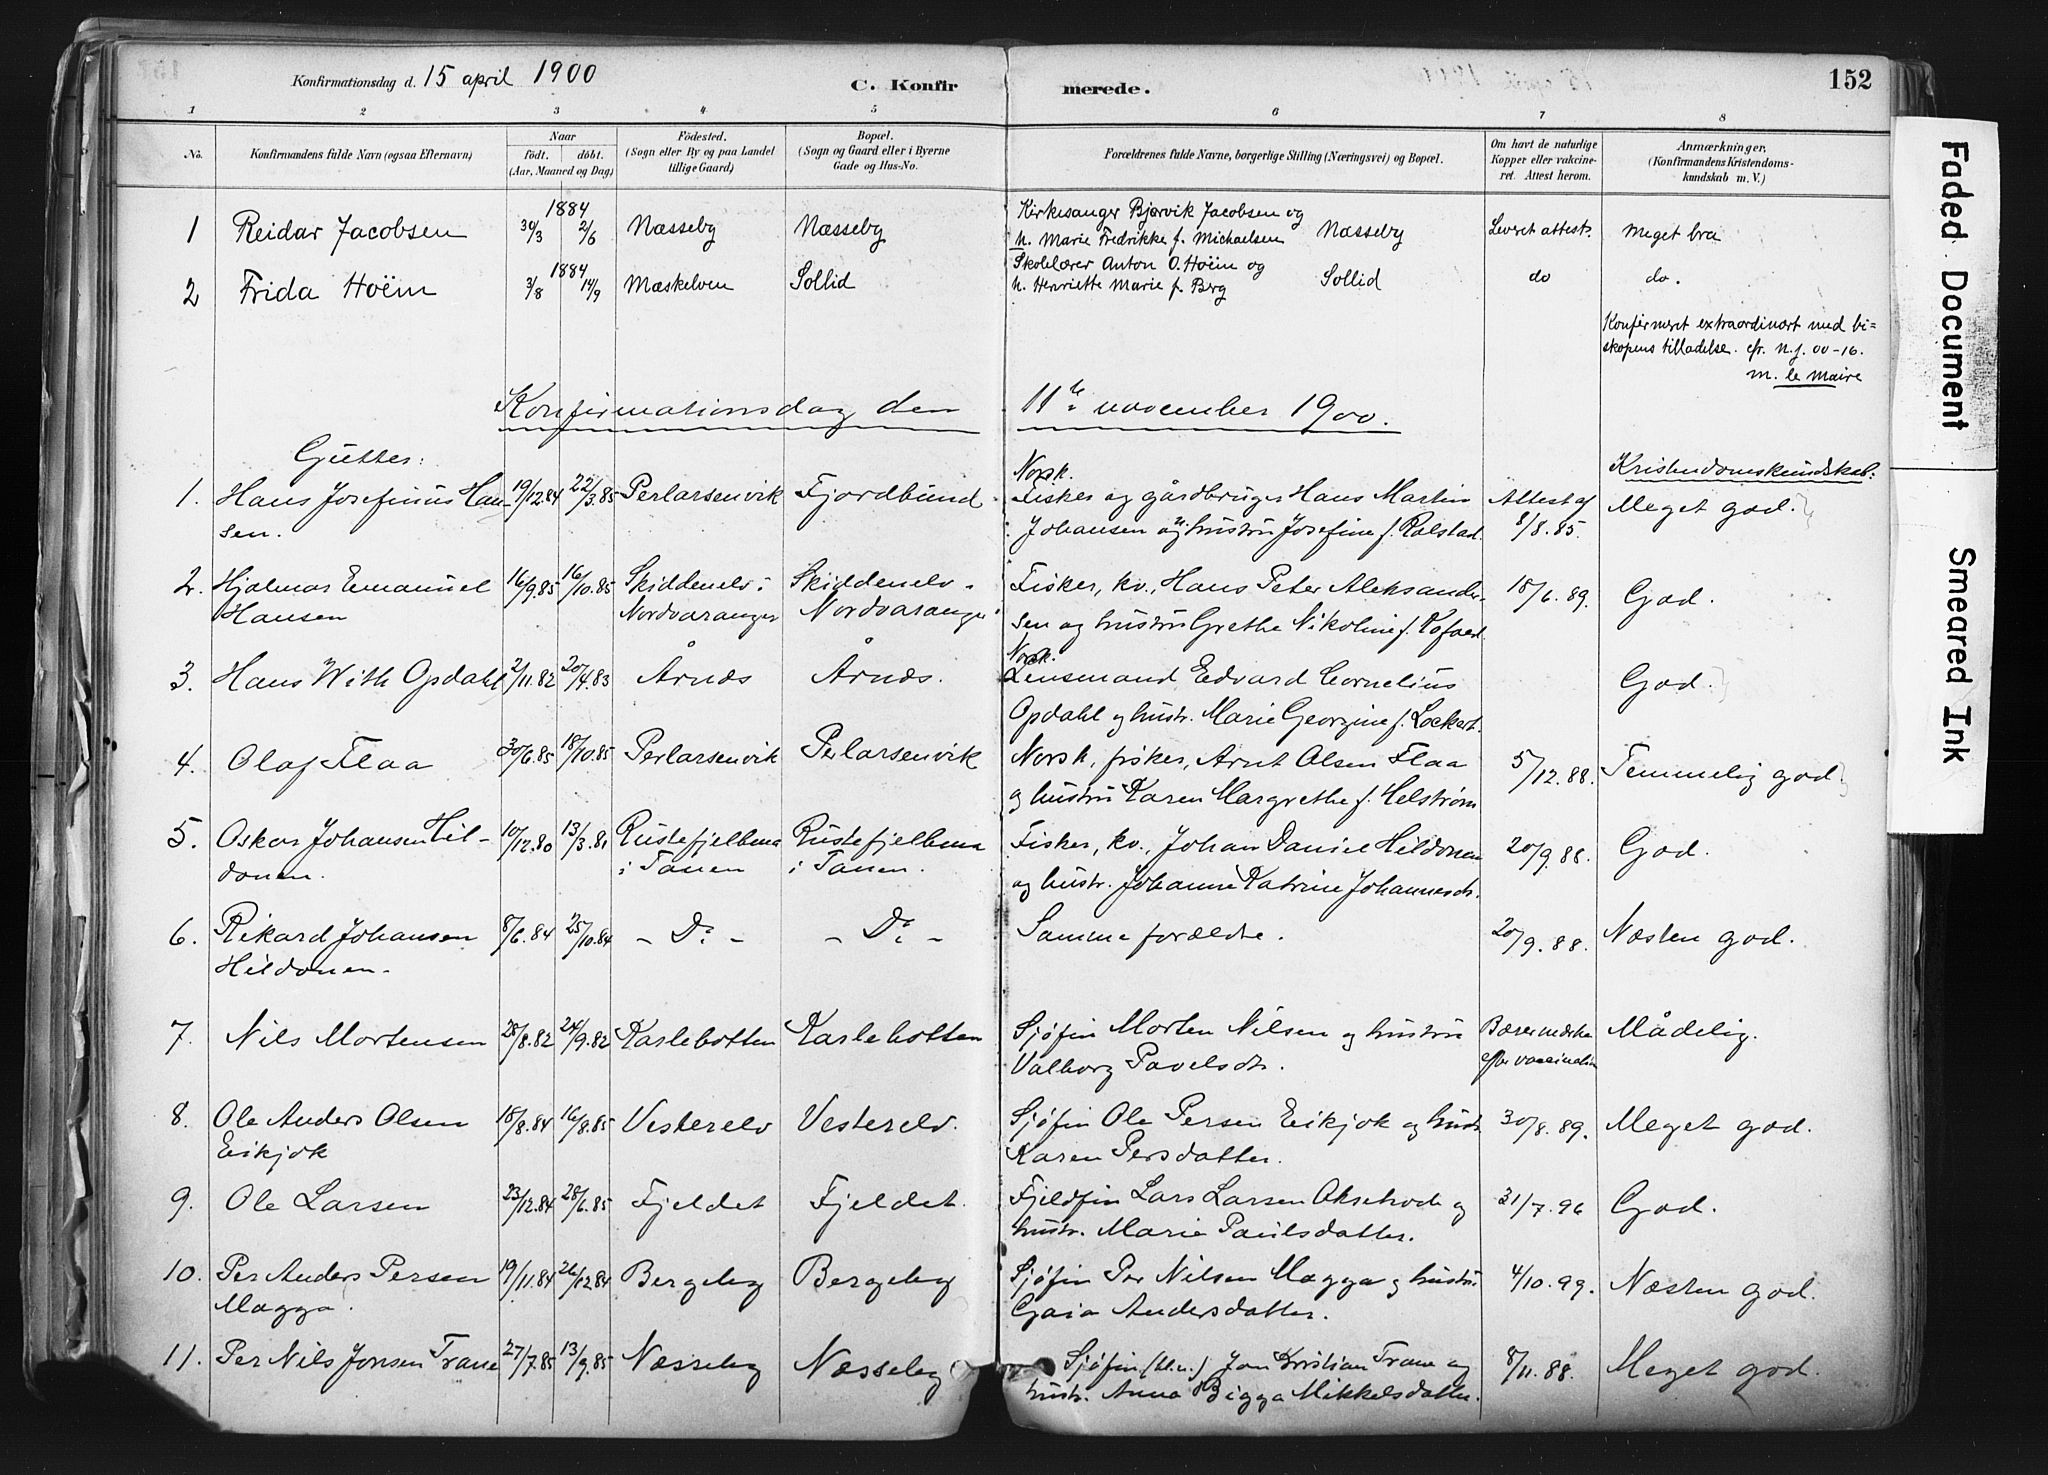 Konfirmationsdag d. 15 april 1900
C. Konfirmerede.
152
1 2 3 4 5 6 7 8
No.
Konfirmandens fulde Navn (ogsaa Efternavn)
Naar
født. døbt.
(Aar, Maaned og Dag)
Fødested.
(Sogn eller By og paa Landet
tillige Gaard)
Bopæl.
(Sogn og Gaard eller i Byerne
Gade og Hus-No.
Forældrenes fulde Navne, borgerlige Stilling (Næringsvei) og Bopæl.
Om havt de naturlige
Kopper eller vakcine-
ret. Attest herom.
Anmærkninger.
(Konfirmandens Kristendoms-
kundskab m. V.)
1 Reidar Jacobsen 1884 30/3 2/6 Næsseby Næsseby Kirkesanger Bjarvik Jacobsen og
h. Marie Fredrikke f. Michaelsen Næsseby Leveret attest. Meget bra
2 Frida Hoëm 1884 3/8 14/9 Mæskelven Sollid Skolelærer Anton O. Hoëm og
h. Henriette Marie f. Berg Sollid do do.
Konfirmeret extraordinært med bi=
skopens tilladelse. cfr. n.j. 00-16.
M. le Maire
Konfirmationsdag den 11te november 1900.
Gutter:
Kristendomskundskab:
1. Hans Josefinus Han- 19/12.84 22/3.85 Perlarsenvik Fjordbund Norsk. Fisker og gårdbruger Hans Martin Attest af Meget god.
sen. Johansen og hustru Josefine f. Kolstad. 8/8.85.
2. Hjalmar Emanuel 16/9.85 16/10.85 Skiddenelv i Skiddenelv - Fisker, kv., Hans Peter Aleksander- 18/6.89. God.
Hansen Nordvaranger Nordvaranger sen og hustru Grethe Nikoline f. Kofoed
3. Hans With Opdahl 2/11.82 20/4.83 Årnæs Årnæs. Norsk. Lensmand Edvard Cornelius God.
Opdahl og hustr. Marie Georgine f. Lockert.
4. Olaf Flaa 30/6.85 18/10.85 Perlarsenvik Perlarsenvik Norsk, fisker, Arnt Olsen Flaa 5/12.88. Temmelig god
og hustru Karen Margrethe f. Helstrøm
5. Oskar Johansen Hil- 10/12.80 13/3.81 Rustefjelbma Rustefjelbma Fisker, kv., Johan Daniel Hildonen 20/9.88. God.
donen. i Tanen i Tanen. og hustr. Johanne Katrine Johannesdtr.
6. Rikard Johansen 8/6.84 25/10.84 - Do - - Do - Samme forældre. 20/9.88. Næsten god.
Hildonen.
7. Nils Mortensen 28/8.82 24/9.82 Karlebotten Karlebotten Sjøfin Morten Nilsen og hustru Bærer mærke Mådelig.
Valborg Pavelsdtr. efter vaccination
8. Ole Anders Olsen 18/8.84 16/8.85 Vesterelv Vesterelv. Sjøfin Ole Persen Eikjok og hustr. 30/8.89. Meget god.
Eikjok Karen Persdatter.
9. Ole Larsen 23/12.84 28/6.85 Fjeldet Fjeldet. Fjeldfin Lars Larsen og 31/7.96 God.
hustr. Marie Paulsdatter.
10. Per Anders Persen 19/11.84 26/12.84 Bergeby Bergeby Sjøfin Per Nilsen Magga og hustru 4/10.99. Næsten god.
Magga. Gaia Andersdatter.
11. Per Nils Jonsen Trane 27/7.85 13/9.85 Næsseby Næsseby Sjøfin Jon Kristian Trane og 8/11.88. Meget god.
hustr. Anna Bigga Mikkelsdatter.
Faded Document
Smeared Ink